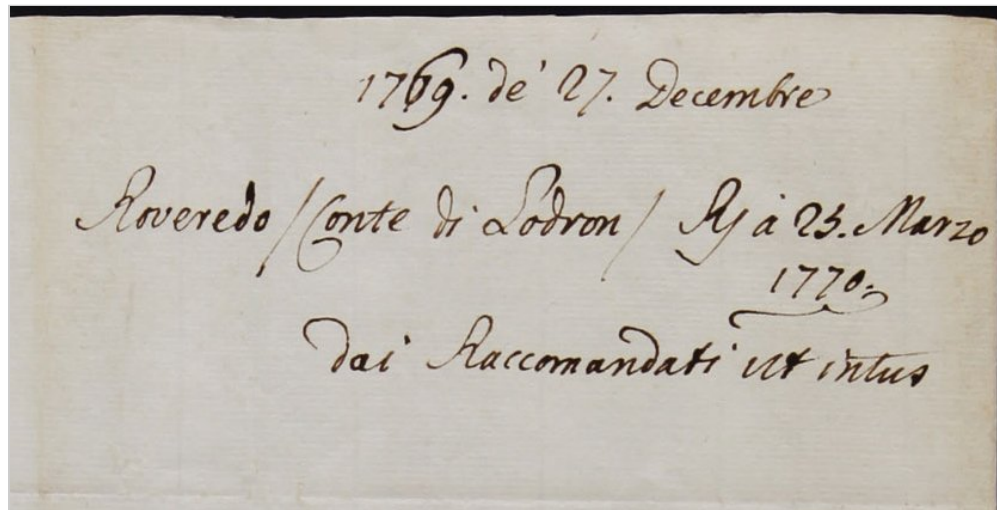 1769. de' 27. Decembre
Roveredo / Conte di Lodron / Rj à 23. Marzo
1770.
dai Raccomandati ut intus